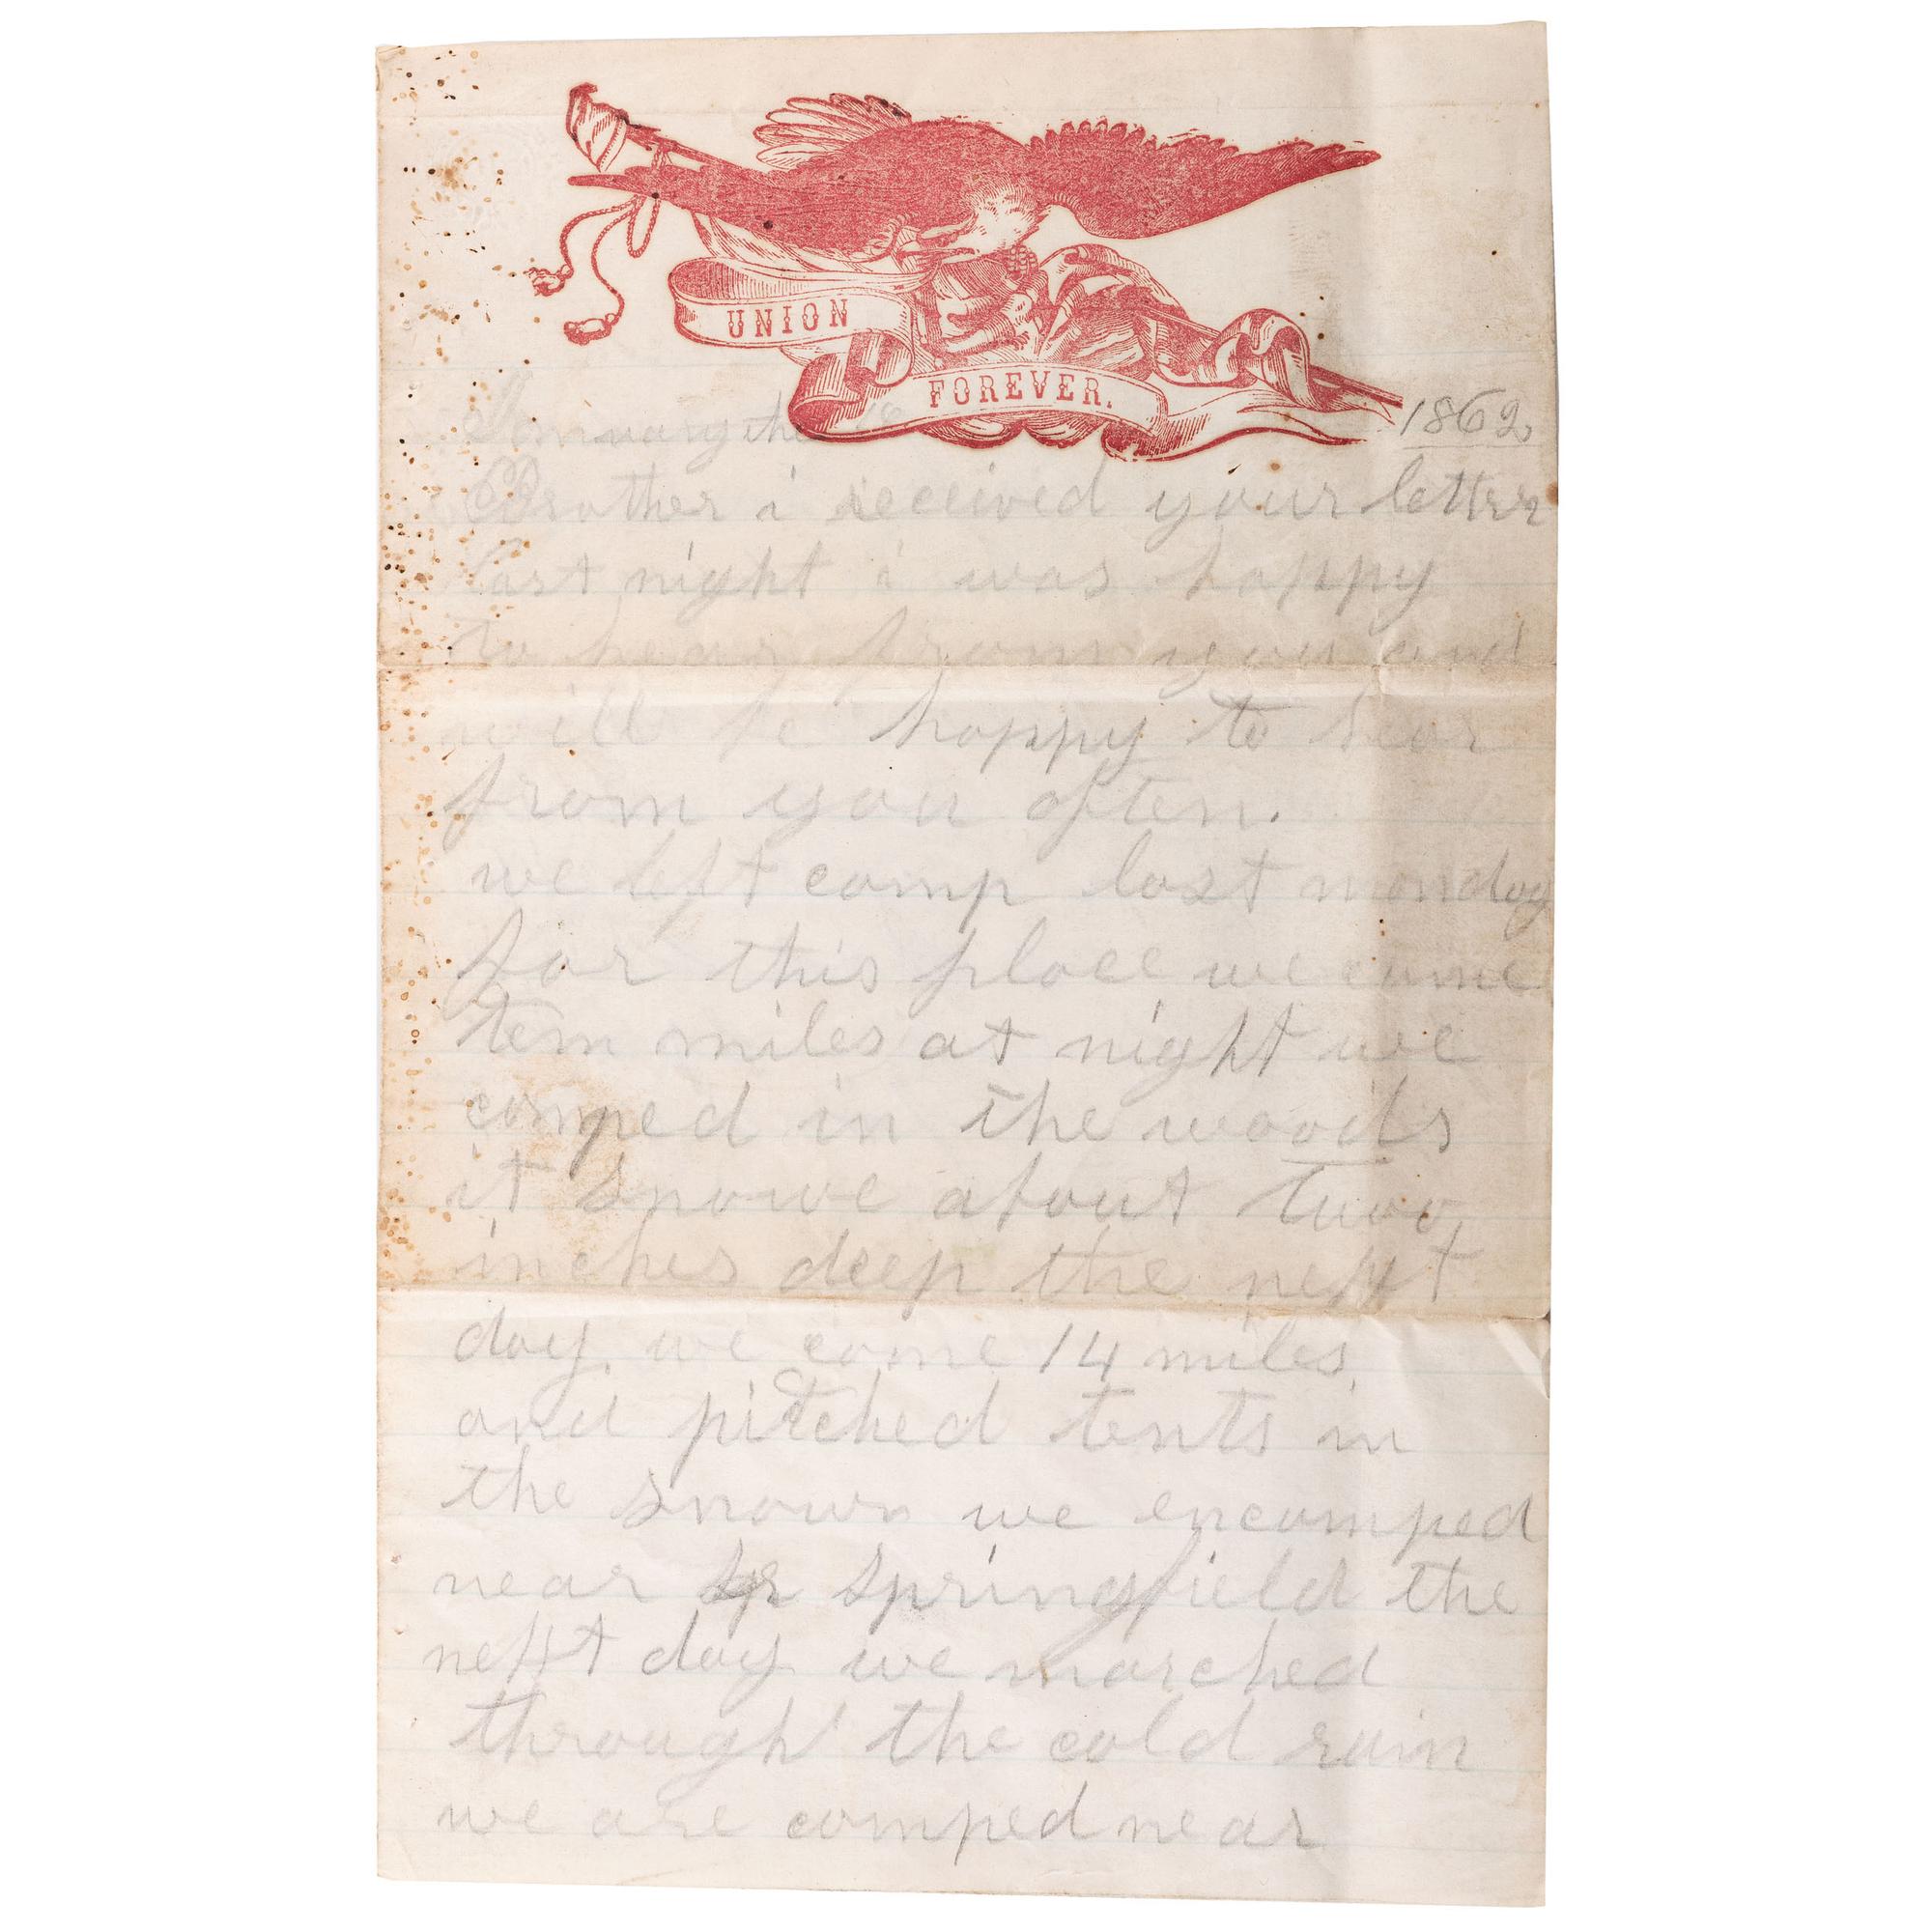 UNION
FOREVER.
January the 18 1862
Brother i received your letter
last night i was happy
to hear from you and
will be happy to hear
from you often.
we left camp last monday
for this place we came
tem miles at night we
camped in the woods
it snowe about two
inches deep the next
day. we came 14 miles
and pitched tents in
the snown we encamped
near sp springfield the
next day we marched
through the cold rain
we are camped near